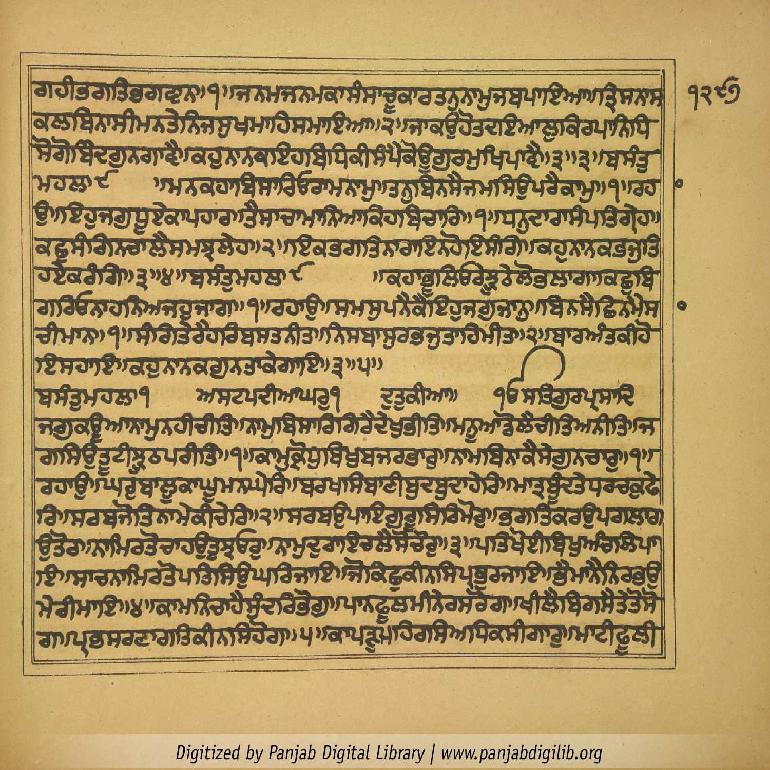 ਗਹੀਭਗਤਿਭਗਵਾਨ॥੧॥ਜਨਮਜਨਮਕਾਸੰਸਾਚੂਕਾਰਤਨੁਨਾਮੁਜਬਪਾਇਆ॥ਤ੍ਰਿਸਨਾਸ
ਕਲਬਿਨਾਸੀਮਨਤੇਨਿਜਸੁਖਮਾਹਿਸਮਾਇਆ॥੨॥ਜਾਕਉਹੋਤਦਇਆਲੁਕਿਰਪਾਨਿਧਿ
ਸੋਗੋਬਿੰਦਗੁਨਗਾਵੈ॥ਕਹੁਨਾਨਕਇਹਬਿਧਿਕੀਸੰਪੈਕੋਊਗੁਰਮੁਖਿਪਾਵੈ॥੩॥੩॥ਬਸੰਤੁ
ਮਹਲਾ੯ ॥ਮਨਕਹਾਬਿਸਾਰਿਓਰਾਮਨਾਮੁ॥ਤਨੁਬਿਨਸੈਜਮਸਿਉਪਰੈਕਾਮੁ॥੧॥ਰਹ
ਉ॥ਇਹੁਜਗੁਧੂਏਕਾਪਹਾਰ॥ਤੈਸਾਚਾਮਾਨਿਆਕਿਹਬਿਚਾਰਿ॥੧॥ਧਨੁਦਾਰਾਸੰਪਤਿਗ੍ਰੇਹ॥
ਕਛੁਸੰਗਿਨਚਾਲੈਸਮਝਲੇਹ॥੨॥ਇਕਭਗਤਿਨਾਰਾਇਨਹੋਇਸੰਗਿ॥ਕਹੁਨਾਨਕਭਜੁਤਿ
ਹਏਕਰੰਗਿ॥੩॥੪॥ਬਸੰਤੁਮਹਲਾ੯ ॥ਕਹਾਭੂਲਿਓਰੇਝੂਠੇਲੋਭਲਾਗ॥ਕਛੁਬਿ
ਗਰਿਓਨਾਹਨਿਅਜਹੁਜਾਗ॥੧॥ਰਹਾਉ॥ਸਮਸੁਪਨੈਕੈਇਹੁਜਗੁਜਾਨੁ॥ਬਿਨਸੈਛਿਨਮੈਸ
ਚੀਮਾਨ॥੧॥ਸੰਗਿਤੇਰੈਹਰਿਬਸਤਨੀਤ॥ਨਿਸਬਾਸੁਰਭਜੁਤਾਹਿਮੀਤ॥੨॥ਬਾਰਅੰਤਕੀਹੋ
ਇਸਹਾਇ॥ਕਹੁਨਾਨਕਗੁਨਤਾਕੇਗਾਇ॥੩॥੫॥
ਬਸੰਤੁਮਹਲਾ੧ ਅਸਟਪਦੀਆਘਰੁ੧ ਦੁਤੁਕੀਆ॥ ੧ਓਸਤਿਗੁਰਪ੍ਰਸਾਦਿ
ਜਗੁਕਊਆਨਾਮੁਨਹੀਚੀਤਿ॥ਨਾਮੁਬਿਸਾਰਿਗਿਰੈਦੇਖੁਭੀਤਿ॥ਮਨੂਆਡੋਲੈਚੀਤਿਅਨੀਤਿ॥ਜ
ਗਸਿਉਤੂਟੀਝੂਠਪਰੀਤਿ॥੧॥ਕਾਮੁਕ੍ਰੋਧੁਬਿਖੁਬਜਰਭਾਰੁ॥ਨਾਮਬਿਨਾਕੈਸੇਗੁਨਚਾਰੁ॥੧॥
ਰਹਾਉ॥ਘਰੁਬਾਲੂਕਾਘੂਮਨਘੇਰਿ॥ਬਰਖਸਿਬਾਣੀਬੁਦਬੁਦਾਹੇਰਿ॥ਮਾਤ੍ਰਬੂੰਦਤੇਧਰਚਕੁਫੇ
ਰਿ॥ਸਰਬਜੋਤਿਨਾਮੈਕੀਚੇਰਿ॥੨॥ਸਰਬਉਪਾਇਗੁਰੂਸਿਰਿਮੋਰੁ॥ਭਗਤਿਕਰਉਪਗਲਾਗ
ਉਤੋਰ॥ਨਾਮਿਰਤੋਚਾਹਉਤੁਝਓਰੁ॥ਨਾਮੁਦੁਰਾਇਚਲੈਸੋਚੋਰੁ॥੩॥ਪਤਿਖੋਈਬਿਖੁਅੰਚਲਿਪਾ
ਇ॥ਸਾਚਨਾਮਿਰਤੋਪਤਿਸਿਉਘਰਿਜਾਇ॥ਜੋਕਿਛੁਕੀਨਸਿਪ੍ਰਭੁਰਜਾਇ॥ਭੈਮਾਨੈਨਿਰਭਉ
ਮੇਰੀਮਾਇ॥੪॥ਕਾਮਨਿਚਾਹੈਸੁੰਦਰਿਭੋਗੁ॥ਪਾਨਫੂਲਮੀਠੇਰਸਰੋਗ॥ਖੀਲੈਬਿਗਸੈਤੇਤੋਸੋ
ਗ॥ਪ੍ਰਭਸਰਣਾਗਤਿਕੀਨਸਿਹੋਗ॥੫॥ਕਾਪੜੁਪਹਿਰਸਿਅਧਿਕਸੀਗਾਰੁ॥ਮਾਟੀਫੂਲੀ
Digitized by Panjab Digital Library | www.panjabdigilib.org